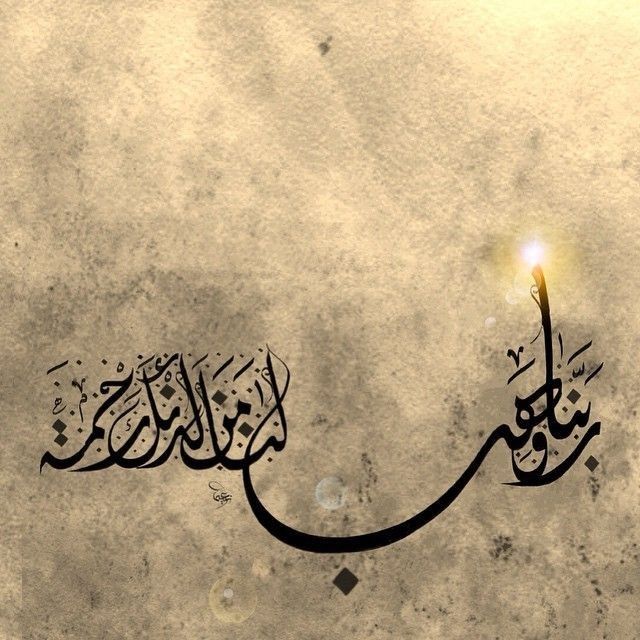 ربنا وهب لنا من لدنك رحمة